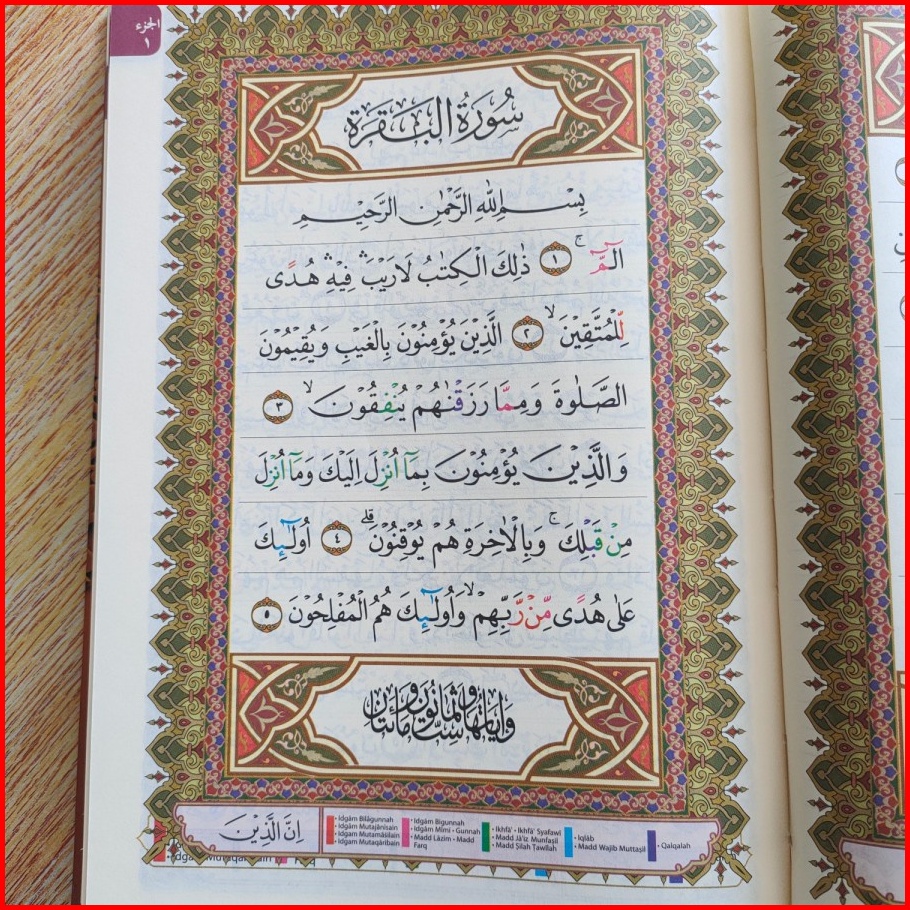 الجزء
١
سُورَةُ الْبَقَرَةِ
بِسْمِ اللّٰهِ الرَّحْمٰنِ الرَّحِيْمِ
الۤمّۤ ۚ ١ ذٰلِكَ الْكِتٰبُ لَا رَيْبَ ۛ فِيْهِ ۛ هُدًى
لِّلْمُتَّقِيْنَ ۙ ٢ الَّذِيْنَ يُؤْمِنُوْنَ بِالْغَيْبِ وَيُقِيْمُوْنَ
الصَّلٰوةَ وَمِمَّا رَزَقْنٰهُمْ يُنْفِقُوْنَ ۙ ٣
وَالَّذِيْنَ يُؤْمِنُوْنَ بِمَآ اُنْزِلَ اِلَيْكَ وَمَآ اُنْزِلَ
مِنْ قَبْلِكَ ۚ وَبِالْاٰخِرَةِ هُمْ يُوْقِنُوْنَ ۗ ٤ اُولٰۤىِٕكَ
عَلٰى هُدًى مِّنْ رَّبِّهِمْ ۙ وَاُولٰۤىِٕكَ هُمُ الْمُفْلِحُوْنَ ٥
وَاٰيَاتُهَا سِتٌّ وَثَمَانُوْنَ وَمِائَتَانِ
اِنَّ الَّذِيْنَ
• Idgām Bilāgunnah
• Idgām Mutajānisain
• Idgam Mutamāṡilain
• Idgam Mutaqāribain
• Idgām Bigunnah
• Idgām Mīmi - Gunnah
• Madd Lāzim - Madd
Farq
• Ikhfā' - Ikhfā' Syafawī
• Madd Jā'iz Munfaṣil
• Madd Ṣilah Ṭawīlah
• Iqlāb
• Madd Wajib Muttaṣil
• Qalqalah